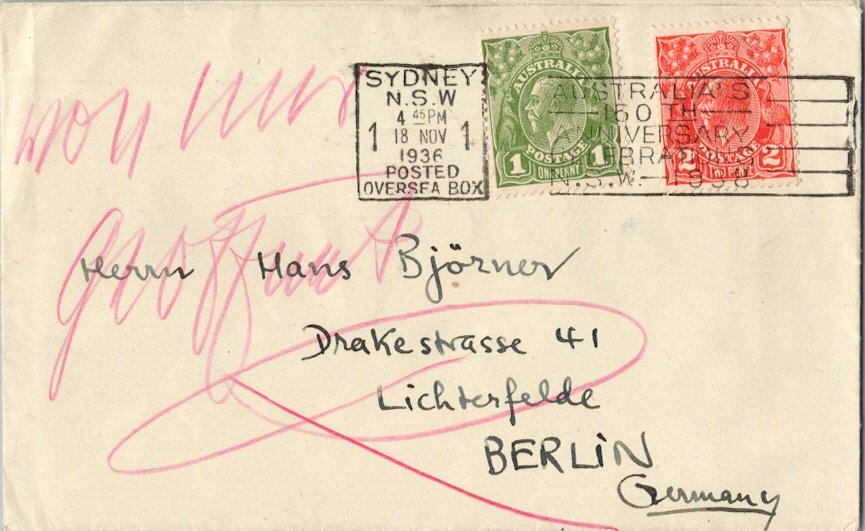 von mir
geöffnet
SYDNEY
N.S.W
4 45 PM
1 18 NOV 1
1936
POSTED
OVERSEA BOX
AUSTRALIA'S
150TH
ANNIVERSARY
CELEBRATIONS
N.S.W. 1938
AUSTRALIA
1 POSTAGE 1
ONE PENNY
AUSTRALIA
2 POSTAGE 2
TWO PENCE
Herrn Hans Björner
Drakestrasse 41
Lichterfelde
BERLiN
Germany